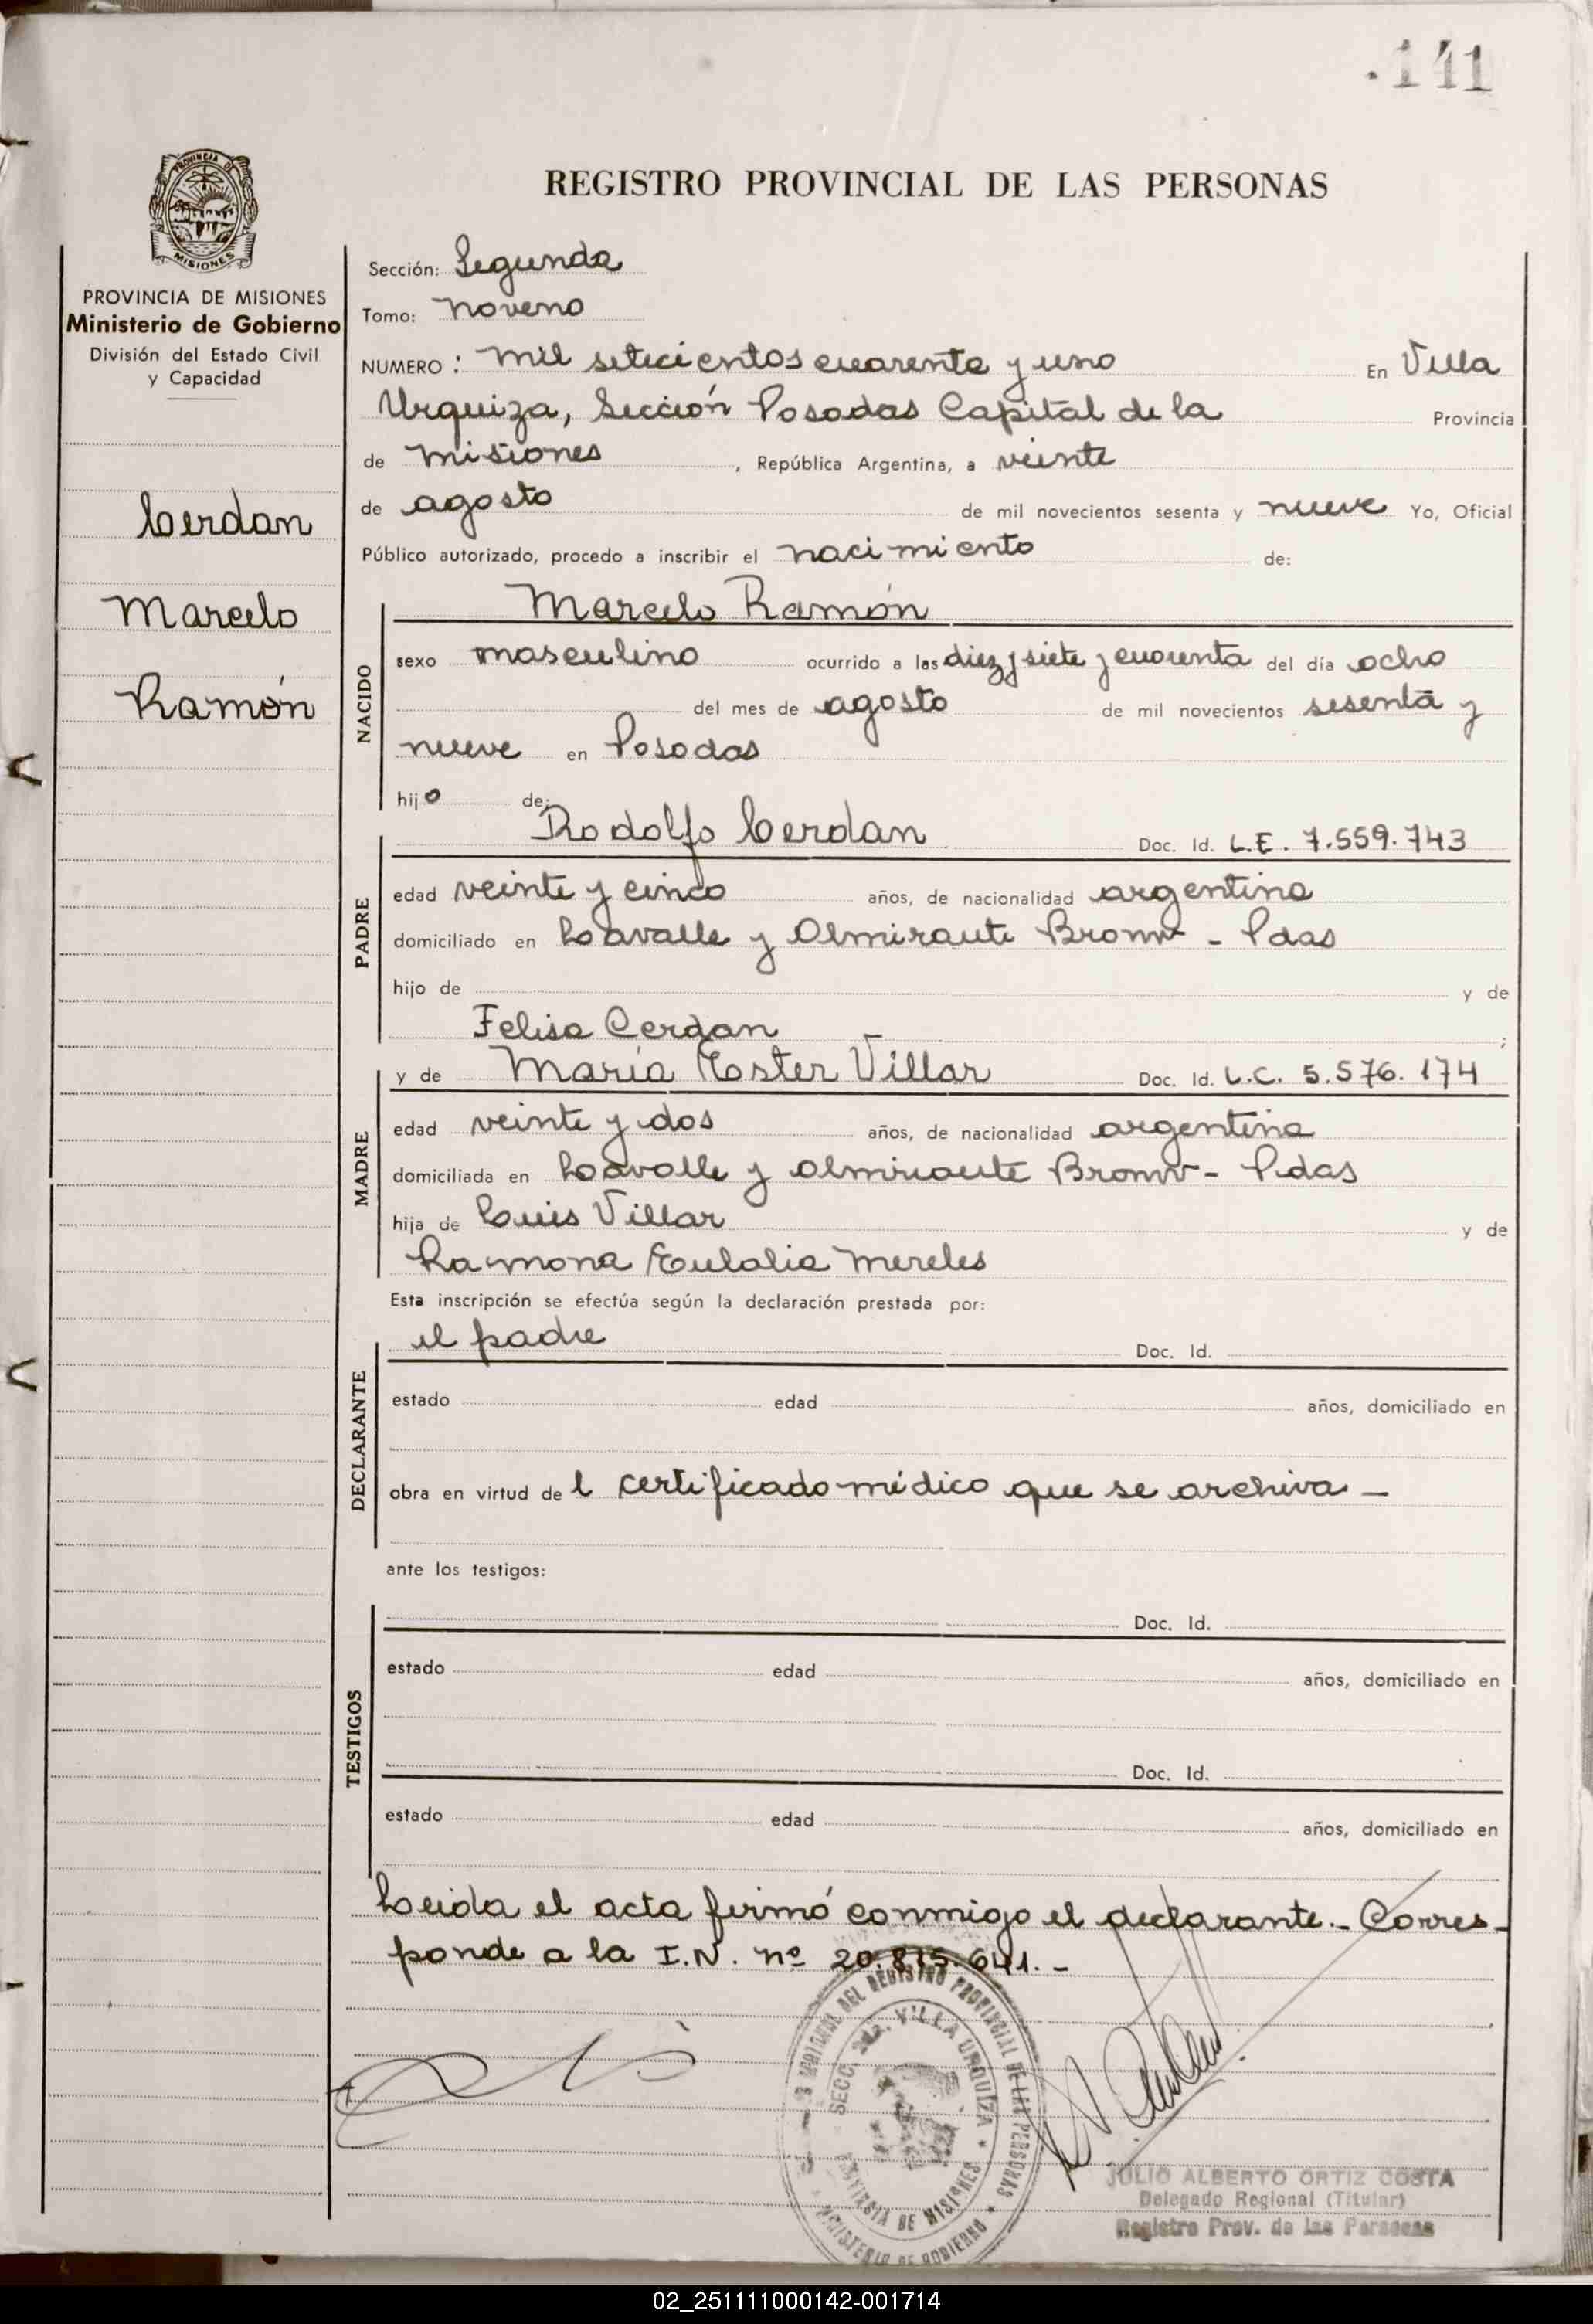 141
REGISTRO PROVINCIAL DE LAS PERSONAS
PROVINCIA DE
MISIONES
PROVINCIA DE MISIONES
Ministerio de Gobierno
División del Estado Civil
y Capacidad
Cerdan
Marcelo
Ramón
Sección: Segunda
Tomo: noveno
NUMERO: mil setecientos cuarenta y uno En Villa
Urquiza, Sección Posadas Capital de la Provincia
de misiones, República Argentina, a veinte
de agosto de mil novecientos sesenta y nueve Yo, Oficial
Público autorizado, procedo a inscribir el nacimiento de:
NACIDO
Marcelo Ramón
sexo masculino ocurrido a las diez y siete y cuarenta del día ocho
del mes de agosto de mil novecientos sesenta y
nueve en Posadas
hijo de:
PADRE
Rodolfo Cerdan Doc. Id. L.E. 7.559.743
edad veinte y cinco años, de nacionalidad argentina
domiciliado en Lavalle y Almirante Bronw - Pdas
hijo de y de
Felisa Cerdan ;
MADRE
y de María Ester Villar Doc. Id. L.C. 5.576.174
edad veinte y dos años, de nacionalidad argentina
domiciliada en Lavalle y Almirante Bronw - Pdas
hija de Luis Villar y de
Ramona Eulalia Mereles
Esta inscripción se efectúa según la declaración prestada por:
DECLARANTE
el padre Doc. Id.
estado edad años, domiciliado en
obra en virtud del certificado médico que se archiva -
ante los testigos:
TESTIGOS
Doc. Id.
estado edad años, domiciliado en
Doc. Id.
estado edad años, domiciliado en
Leida el acta firmó conmigo el declarante.- Corres-
ponde a la I.N. nº 20.815.641.-
DEL REGISTRO PROVINCIAL DE LAS PERSONAS
SECC. 2da. VILLA URQUIZA
DE MISIONES
MINISTERIO DE GOBIERNO
JULIO ALBERTO ORTIZ COSTA
Delegado Regional (Titular)
Registro Prov. de las Personas
02_251111000142-001714